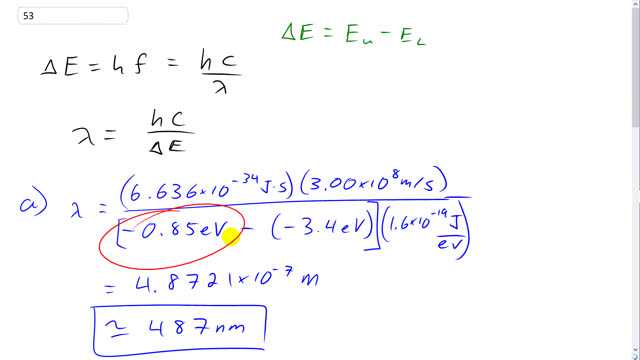 53
ΔE = Eu − EL
ΔE = hf = hc/λ
λ = hc/ΔE
a) λ = (6.636×10^-34 J·s)(3.00×10^8 m/s) / [−0.85eV − (−3.4eV)](1.6×10^-19 J/eV)
= 4.8721×10^-7 m
≃ 487nm